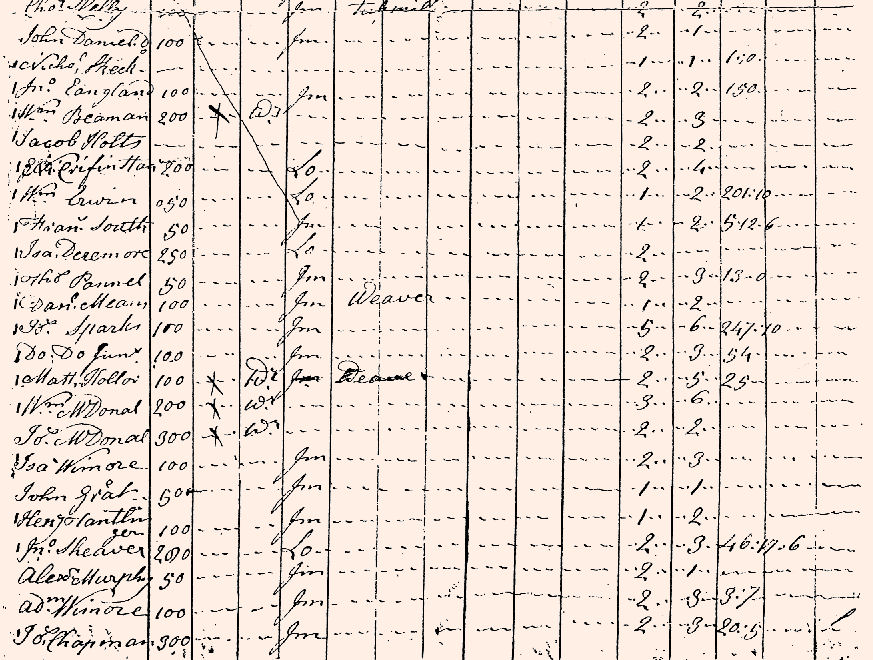 Tho.s Melly Jm 2 2
John Daniel 100 Jm 2 1
Nicho.s Sheck 1 1
1 Jn.o England 100 Jm 2 2 150
1 Wm Beaman 200 X 2 3
1 Jacob Holts 2 2
200 Lo 2 4
1 Wm Erwin 50 Lo 1 2 201:10
1 Fran.s South 50 Jm 1 2 5:12:6
1 Isa. Deremore 250 Lo 2
Pannel 50 Jm 2 3 13:0
Dan.l Mean 100 Jm Weaver 1 2
Jo.s Sparks 100 Jm 5 6 247:10
1 Do. Do Jun.r 100 Jm 2 3 54
1 Matt. Hollor 100 X Jm Weaver 2 5 25
1 Wm McDonal 200 X 3 6
Jo.s McDonal 300 X 2 2
Isa Wimore 100 Jm 2 3
John Grat 50 Jm 1 1
100 Jm 1 2
1 Jn.o Sheaver 200 Lo 2 3 46:17:6
Alex.d Murphy 50 Jm 2 1
ad.m Wimore 100 Jm 2 3 3:7
1 Jo.s Chapman 300 Jm 2 3 20:5